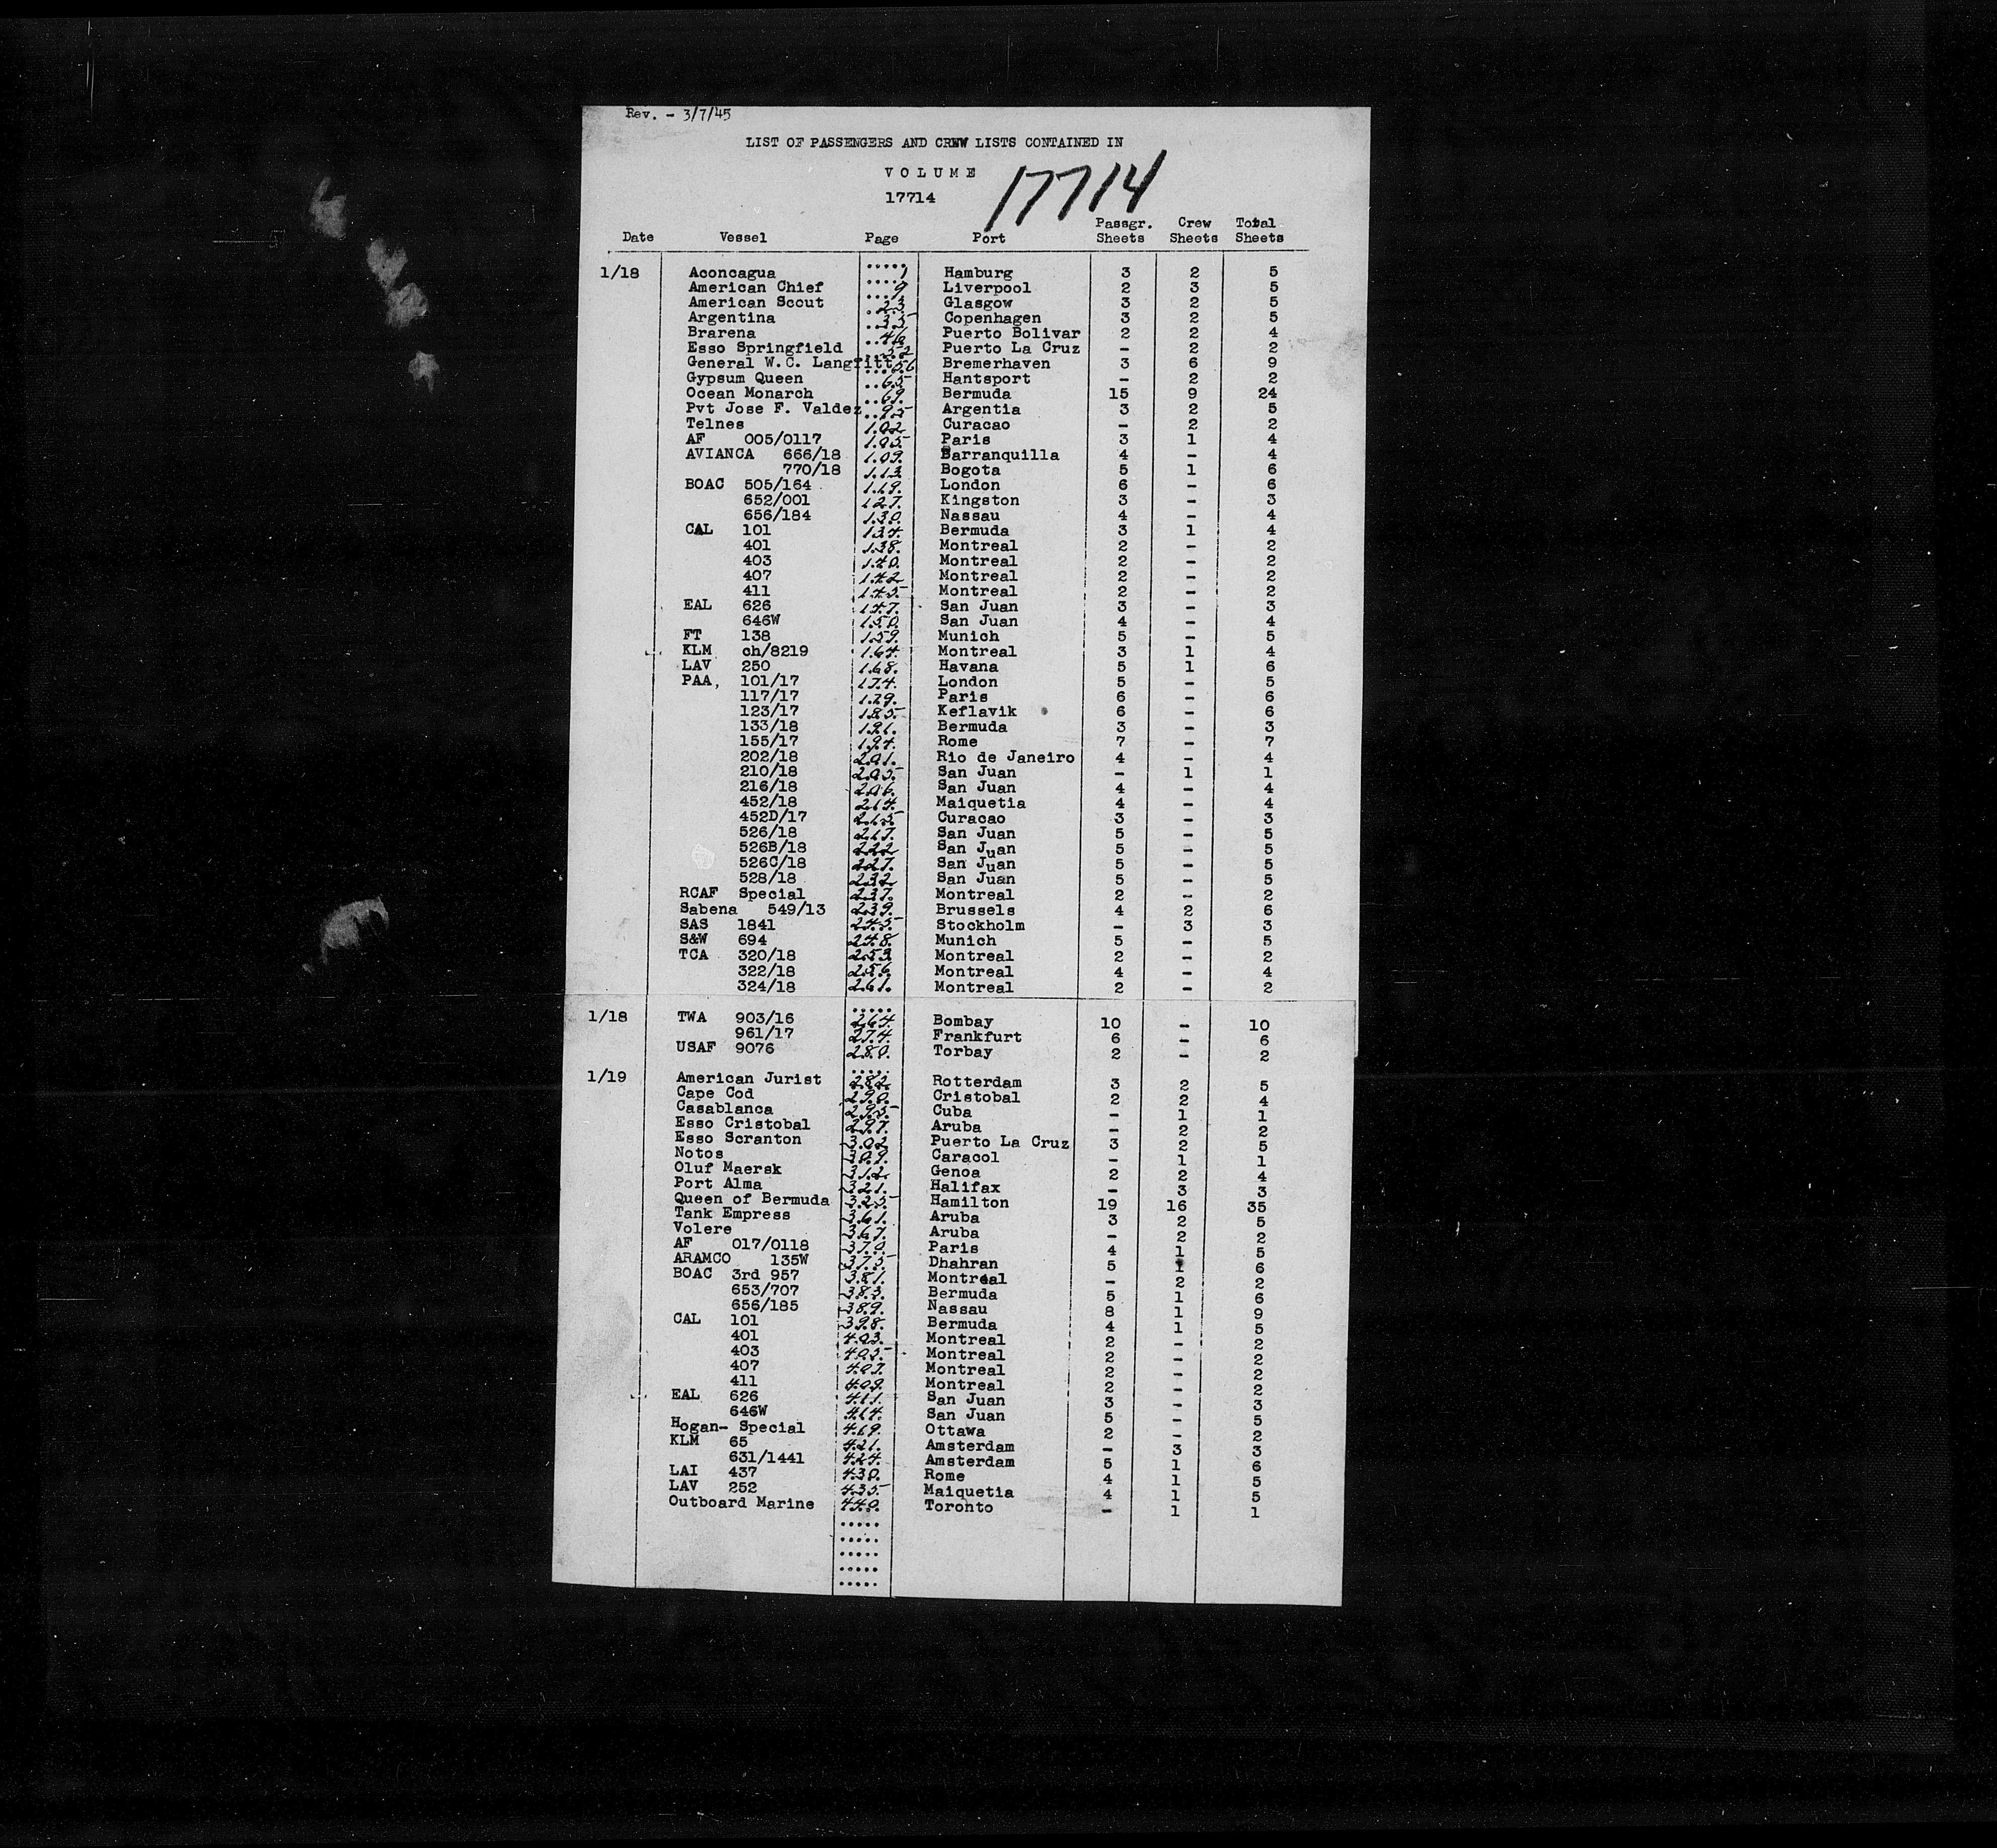 Rev. - 3/7/45
LIST OF PASSENGERS AND CREW LISTS CONTAINED IN
VOLUME
17714 17714
Date Vessel Page Port Passgr. Sheets Crew Sheets Total Sheets
1/18 Aconcagua 1 Hamburg 3 2 5
American Chief 9 Liverpool 2 3 5
American Scout 23 Glasgow 3 2 5
Argentina 35 Copenhagen 3 2 5
Brarena 46 Puerto Bolivar 2 2 4
Esso Springfield 52 Puerto La Cruz - 2 2
General W.C. Langfitt 56 Bremerhaven 3 6 9
Gypsum Queen 65 Hantsport - 2 2
Ocean Monarch 69 Bermuda 15 9 24
Pvt Jose F. Valdez 95 Argentia 3 2 5
Telnes 102 Curacao - 2 2
AF 005/0117 105 Paris 3 1 4
AVIANCA 666/18 109 Barranquilla 4 - 4
770/18 113 Bogota 5 1 6
BOAC 505/164 119 London 6 - 6
652/001 127 Kingston 3 - 3
656/184 130 Nassau 4 - 4
CAL 101 134 Bermuda 3 1 4
401 138 Montreal 2 - 2
403 140 Montreal 2 - 2
407 142 Montreal 2 - 2
411 145 Montreal 2 - 2
EAL 626 147 San Juan 3 - 3
646W 150 San Juan 4 - 4
FT 138 159 Munich 5 - 5
KLM ch/8219 164 Montreal 3 1 4
LAV 250 168 Havana 5 1 6
PAA, 101/17 174 London 5 - 5
117/17 179 Paris 6 - 6
123/17 185 Keflavik 6 - 6
133/18 191 Bermuda 3 - 3
155/17 194 Rome 7 - 7
202/18 201 Rio de Janeiro 4 - 4
210/18 205 San Juan - 1 1
216/18 206 San Juan 4 - 4
452/18 214 Maiquetia 4 - 4
452D/17 215 Curacao 3 - 3
526/18 217 San Juan 5 - 5
526B/18 222 San Juan 5 - 5
526C/18 227 San Juan 5 - 5
528/18 232 San Juan 5 - 5
RCAF Special 237 Montreal 2 - 2
Sabena 549/13 239 Brussels 4 2 6
SAS 1841 245 Stockholm - 3 3
S&W 694 248 Munich 5 - 5
TCA 320/18 253 Montreal 2 - 2
322/18 256 Montreal 4 - 4
324/18 261 Montreal 2 - 2
1/18 TWA 903/16 264 Bombay 10 - 10
961/17 274 Frankfurt 6 - 6
USAF 9076 280 Torbay 2 - 2
1/19 American Jurist 282 Rotterdam 3 2 5
Cape Cod 290 Cristobal 2 2 4
Casablanca 295 Cuba - 1 1
Esso Cristobal 297 Aruba - 2 2
Esso Scranton 302 Puerto La Cruz 3 2 5
Notos 309 Caracol - 1 1
Oluf Maersk 312 Genoa 2 2 4
Port Alma 321 Halifax - 3 3
Queen of Bermuda 325 Hamilton 19 16 35
Tank Empress 361 Aruba 3 2 5
Volere 367 Aruba - 2 2
AF 017/0118 370 Paris 4 1 5
ARAMCO 135W 375 Dhahran 5 1 6
BOAC 3rd 957 381 Montreal - 2 2
653/707 383 Bermuda 5 1 6
656/185 389 Nassau 8 1 9
CAL 101 398 Bermuda 4 1 5
401 403 Montreal 2 - 2
403 405 Montreal 2 - 2
407 407 Montreal 2 - 2
411 409 Montreal 2 - 2
EAL 626 411 San Juan 3 - 3
646W 414 San Juan 5 - 5
Hogan- Special 419 Ottawa 2 - 2
KLM 65 421 Amsterdam - 3 3
631/1441 424 Amsterdam 5 1 6
LAI 437 430 Rome 4 1 5
LAV 252 435 Maiquetia 4 1 5
Outboard Marine 440 Toronto - 1 1